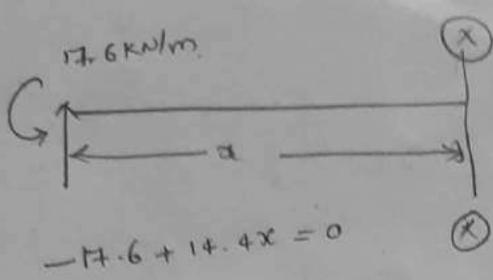 17.6 KN/m.
X
x
-17.6 + 14.4x = 0
X